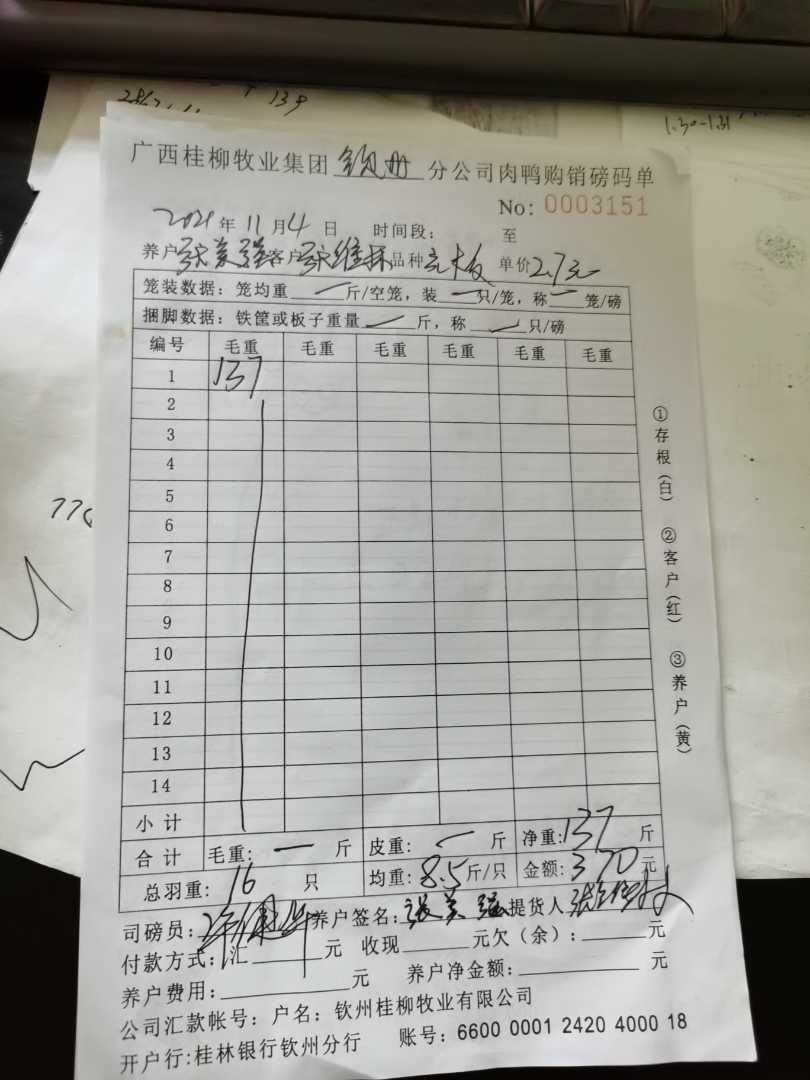 139
1.30-1.31
广西桂柳牧业集团 钦州 分公司肉鸭购销磅码单
No: 0003151
2021 年 11 月 4 日 时间段: 至
养户 张美强 客户 张维林 品种 毛大板 单价 2.7元
笼装数据: 笼均重 — 斤/空笼, 装 — 只/笼, 称 — 笼/磅
捆脚数据: 铁筐或板子重量 斤, 称 只/磅
编号 毛重 毛重 毛重 毛重 毛重 毛重
1 137
2
3
4
5
6
7
8
9
10
11
12
13
14
小计
合计 毛重: — 斤 皮重: 斤 净重: 137 斤
总羽重: 16 只 均重: 8.5 斤/只 金额: 370 元
司磅员: 养户签名: 张美强 提货人
付款方式: 汇 元 收现 元欠(余): 元
养户费用: 元 养户净金额: 元
公司汇款帐号: 户名: 钦州桂柳牧业有限公司
开户行:桂林银行钦州分行 账号: 6600 0001 2420 4000 18
①存根(白) ②客户(红) ③养户(黄)